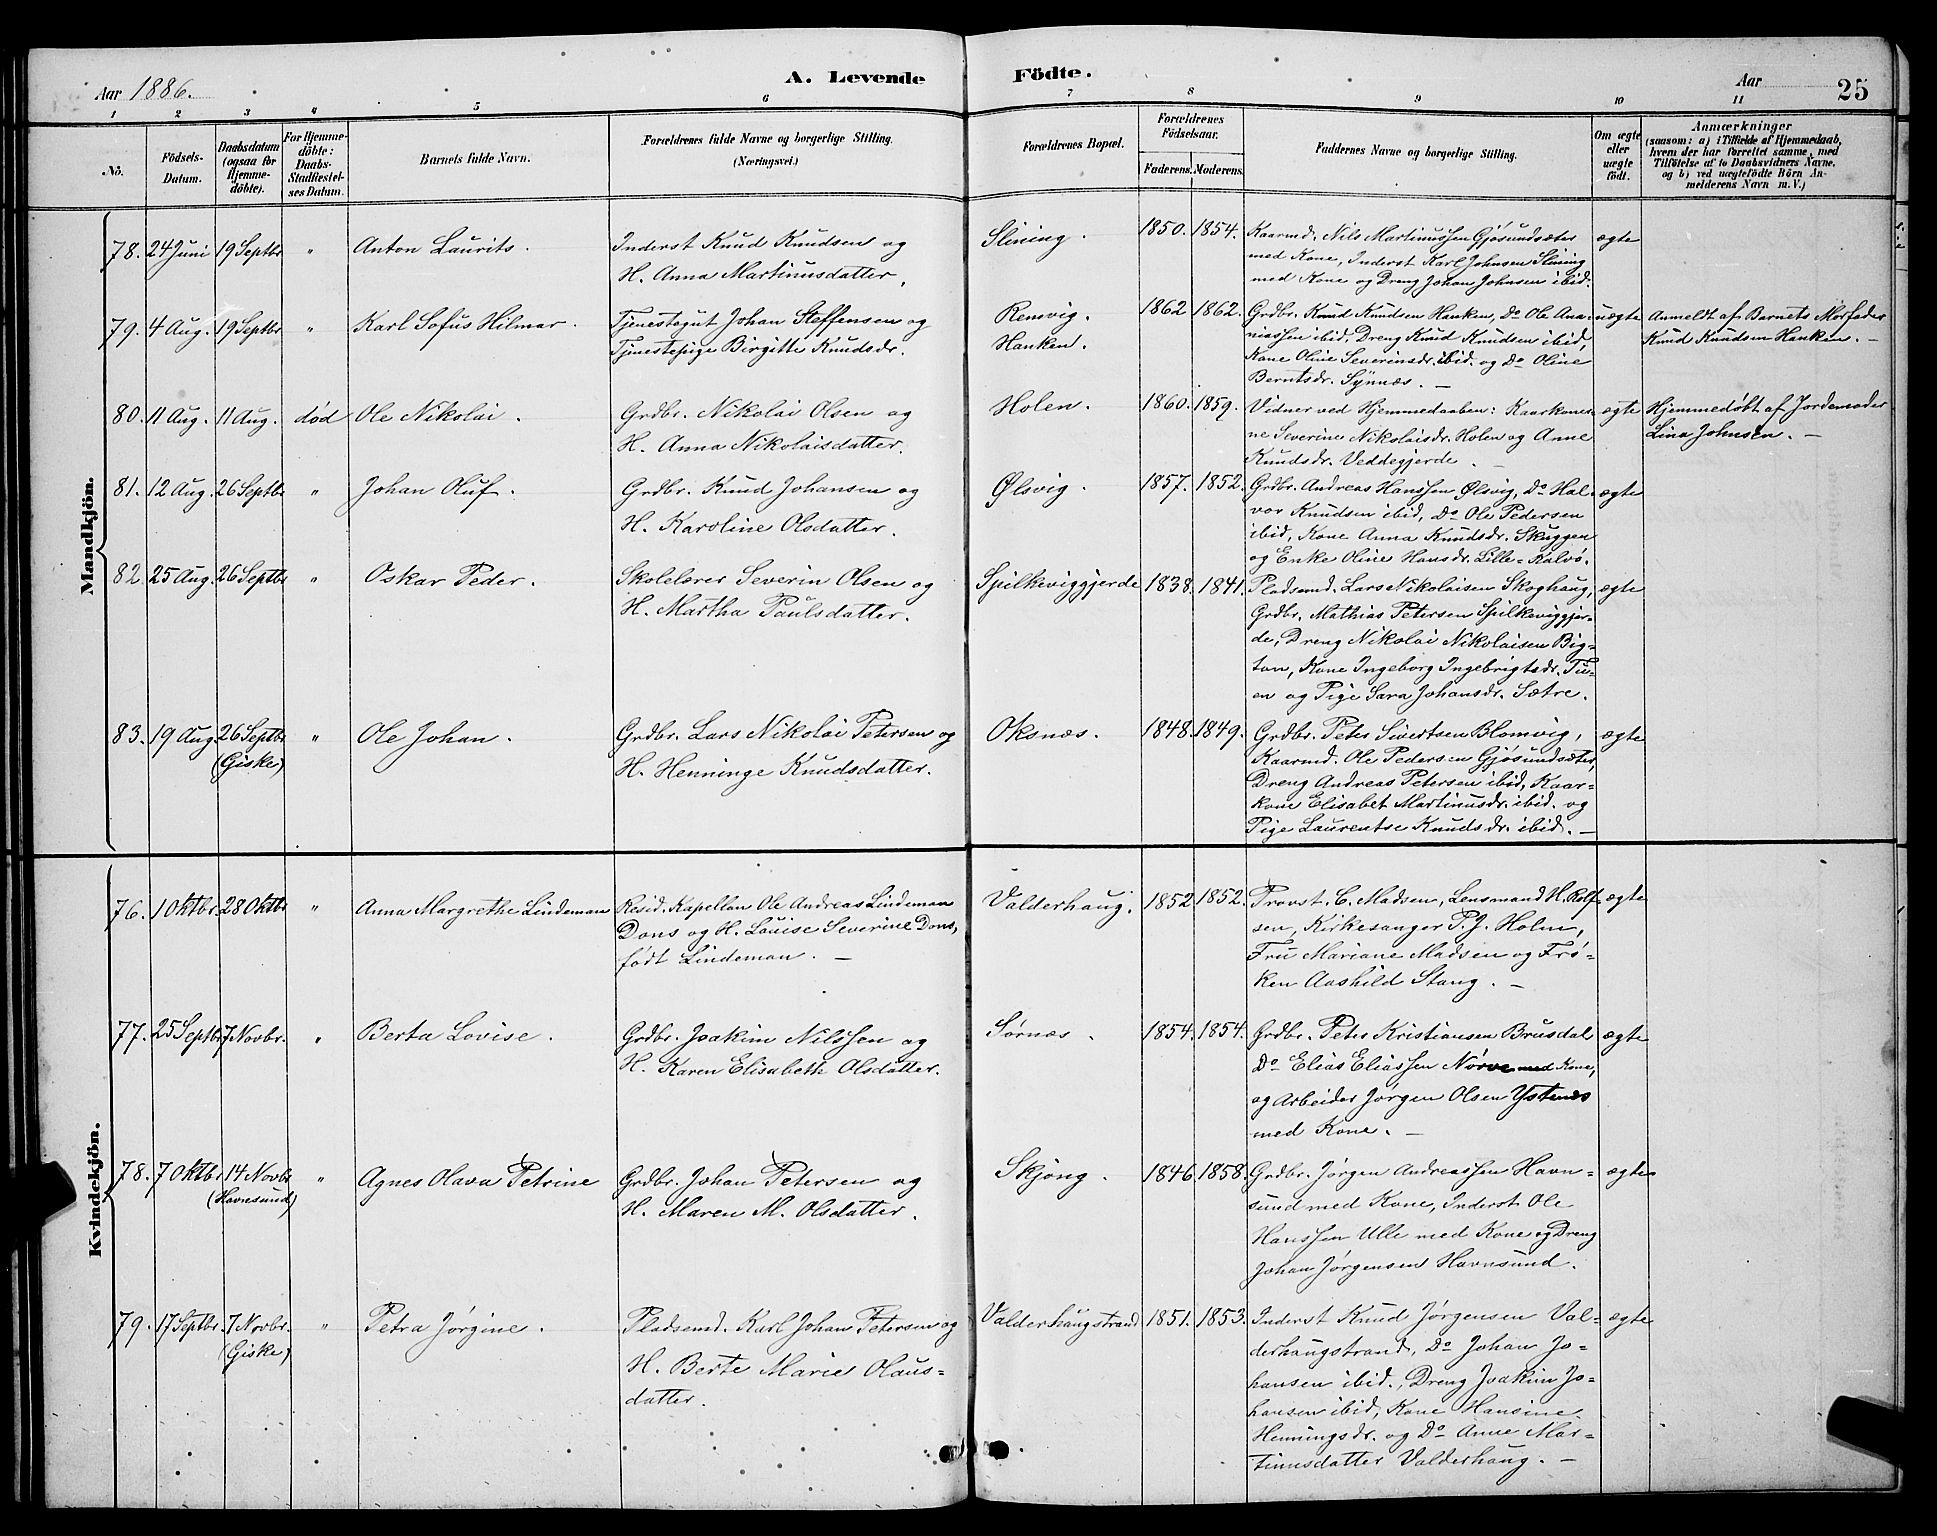 A. Levende Födte.
Aar 1886.
Aar
25
1 2 3 4 5 6 7 8 9 10 11
No.
Födsels-Datum.
Daabsdatum (ogsaa for Hjemmedöbte).
For Hjemmedöbte: Daabs-Stadfæstelses Datum.
Barnets fulde Navn.
Forældrenes fulde Navne og borgerlige Stilling. (Næringsvei.)
Forældrenes Bopæl.
Forældrenes Födselsaar.
Faderens. Moderens.
Faddernes Navne og borgerlige Stilling.
Om ægte eller uægte födt.
Anmærkninger
(saasom: a) i Tilfælde af Hjemmedaab,
hvem der har forrettet samme, med
Tilföielse af to Daabsvidners Navne,
og b) ved uægtefödte Börn An-
melderens Navn m. V.)
Mandkjön.
78. 24 Juni 19 Septbr " Anton Laurits. Inderst Knud Knudsen og Slining. 1850. 1854. Kaarmd. Nils Martinussen Gjøsundsæter ægte
H. Anna Martinusdatter. med Kone, Inderst Karl Johnsen Slining
med Kone og Dreng Johan Johnsen ibid.
79. 4 Aug. 19 Septbr " Karl Sofus Hilmar. Tjenestegut Johan Steffensen og Remvig. 1862 1862. Grdbr. Knud Knudsen Hanken, Do Ole Ana- uægte Anmeldt af Barnets Morfader
Tjenestepige Birgitte Knudsdr. Hanken. niassen ibid, Dreng Knud Knudsen ibid, Knud Knudsen Hanken. –
Kone Oline Severinsdr. ibid. og Do Oline
Berntsdr. Synnæs. –
80. 11 Aug. 11 Aug. død Ole Nikolai. Grdbr. Nikolai Olsen og Holen. 1860. 1859. Vidner ved Hjemmedaaben: Kaarkoner- ægte Hjemmedøbt af Jordemoder
H. Anna Nikolaisdatter. ne Severine Nikolaisdr. Holen og Anne Lina Johnsen. –
Knudsdr. Veddegjerde. –
81. 12 Aug. 26 Septbr " Johan Oluf. Grdbr. Knud Johansen og Ølsvig. 1857. 1852. Grdbr. Andreas Hanssen Ølsvig, Do Hal- ægte
H. Karoline Olsdatter. vor Knudsen ibid, Do Ole Pedersen
ibid, Kone Anna Knudsdr. Skuggen
og Enke Oline Hansdr. Lille-Kalvø.
82. 25 Aug. 26 Septbr " Oskar Peder. Skolelærer Severin Olsen og Spilkeviggjerde 1838. 1841. Pladsmd. Lars Nikolaisen Skoghaug, ægte
H. Martha Paulsdatter. Grdbr. Mathias Petersen Spilkeviggjer-
de, Dreng Nikolai Nikolaisen Big-
tan, Kone Ingeborg Ingebrigtsdr. Tu-
en og Pige Sara Johansdr. Sætre.
83. 19 Aug. 26 Septbr " Ole Johan. Grdbr. Lars Nikolai Petersen og Oksnæs. 1848. 1849. Grdbr. Peter Sivertsen Blomvig, ægte
(Giske) H. Henninge Knudsdatter. Kaarmd. Ole Pedersen Gjøsundsæter,
Dreng Andreas Petersen ibid, Kaar-
kone Elisabet Martinusdr. ibid. og
Pige Laurentse Knudsdr. ibid. –
Kvindekjön.
76. 1 Oktbr. 28 Oktbr " Anna Margrethe Lindeman Resid. Kapellan Ole Andreas Lindeman Valderhaug. 1852 1852. Provst C. Madsen, Lensmand H. Rolf- ægte
Dons og H. Louise Severine Dons, sen, Kirkesanger P. J. Holm,
født Lindeman. – Fru Mariane Madsen og Frø-
ken Aashild Stang. –
77. 25 Septbr. 7 Novbr. " Berta Lovise. Grdbr. Joakim Nilssen og Sørnæs. 1854. 1854. Grdbr. Peter Kristiansen Brusdal ægte
H. Karen Elisabeth Olsdatter. Do Elias Eliassen Nørve med Kone,
og Arbeider Jørgen Olsen Ystenes
med Kone. –
78. 7 Oktbr 14 Novbr " Agnes Olava Petrine Grdbr. Johan Petersen og Skjong. 1846 1858. Grdbr. Jørgen Andreassen Havn- ægte
(Havnsund) H. Maren M. Olsdatter. sund med Kone, Inderst Ole
Hanssen Ulle med Kone og Dreng
Johan Jørgensen Havnsund.
79. 17 Septbr. 7 Novbr. " Petra Jørgine. Pladsemd. Karl Johan Petersen og Valderhaugstrand 1851. 1853. Inderst Knud Jørgensen Val- ægte
(Giske) H. Berte Marie Olaus- derhaugstrand, Do Johan Jo-
datter. hansen ibid., Dreng Joakim Jo-
hansen ibid, Kone Hansine
Henningsdr. og Do Anne Mar-
tinusdatter Valderhaug. –